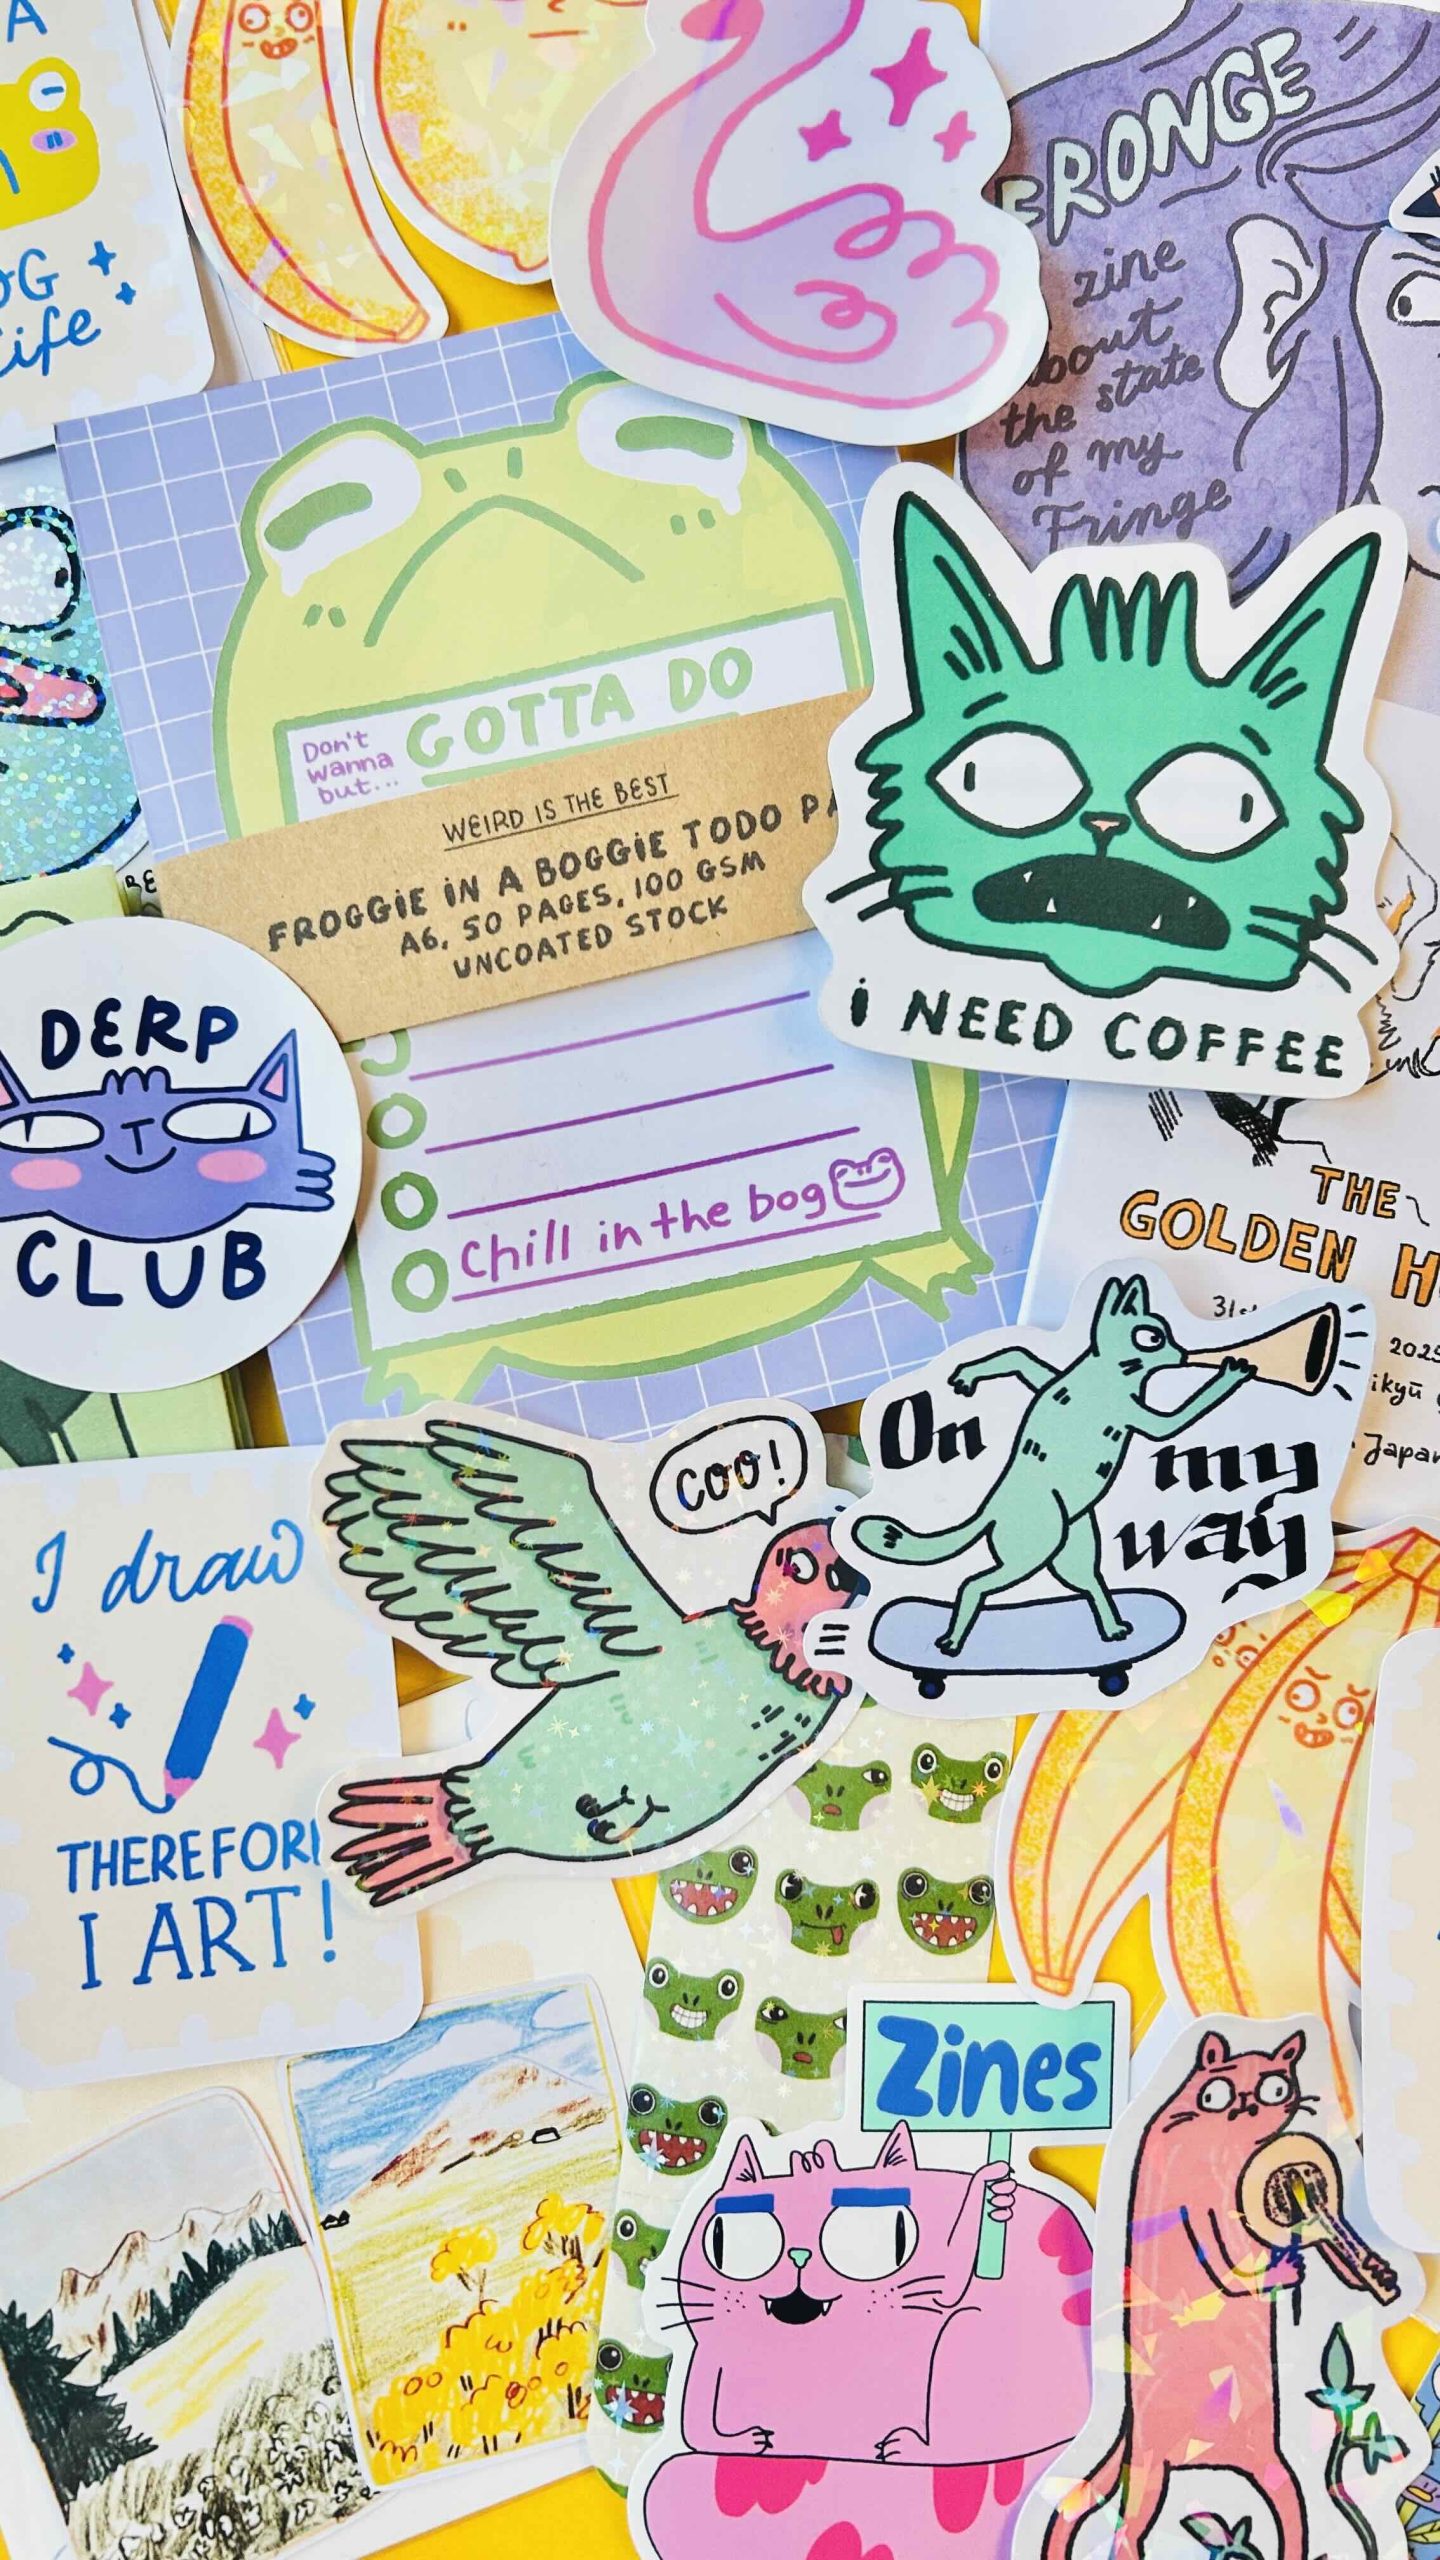 A
OG
Life
FRONGE
zine
about
the state
of my
Fringe
Don't
wanna
but...
GOTTA DO
WEIRD IS THE BEST
FROGGIE IN A BOGGIE TODO PA
A6, 50 PAGES, 100 GSM
UNCOATED STOCK
Chill in the bog
i NEED COFFEE
BE
DERP
CLUB
THE
GOLDEN H
31st
2025
ikyū
Japan
On
my
way
COO!
I draw
THEREFORE
I ART!
Zines